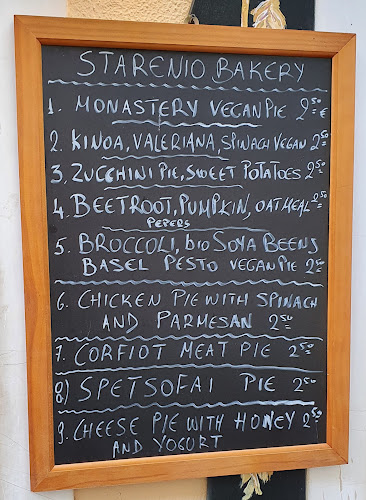 STARENIO BAKERY
1. MONASTERY VEGAN PIE 2.50€
2. KINOA, VALERIANA, SPINACH VEGAN 2.50
3. ZUCCHINI PIE, SWEET POTATOES 2.50
4. BEETROOT, PUMPKIN, OATMEAL 2.50
PEPERS
5. BROCCOLI, bio SOYA BEENS
BASEL PESTO VEGAN PIE 2.50
6. CHICKEN PIE WITH SPINACH
AND PARMESAN 2.50
7. CORFIOT MEAT PIE 2.50
8) SPETSOFAI PIE 2.50
9. CHEESE PIE WITH HONEY 2.50
AND YOGURT